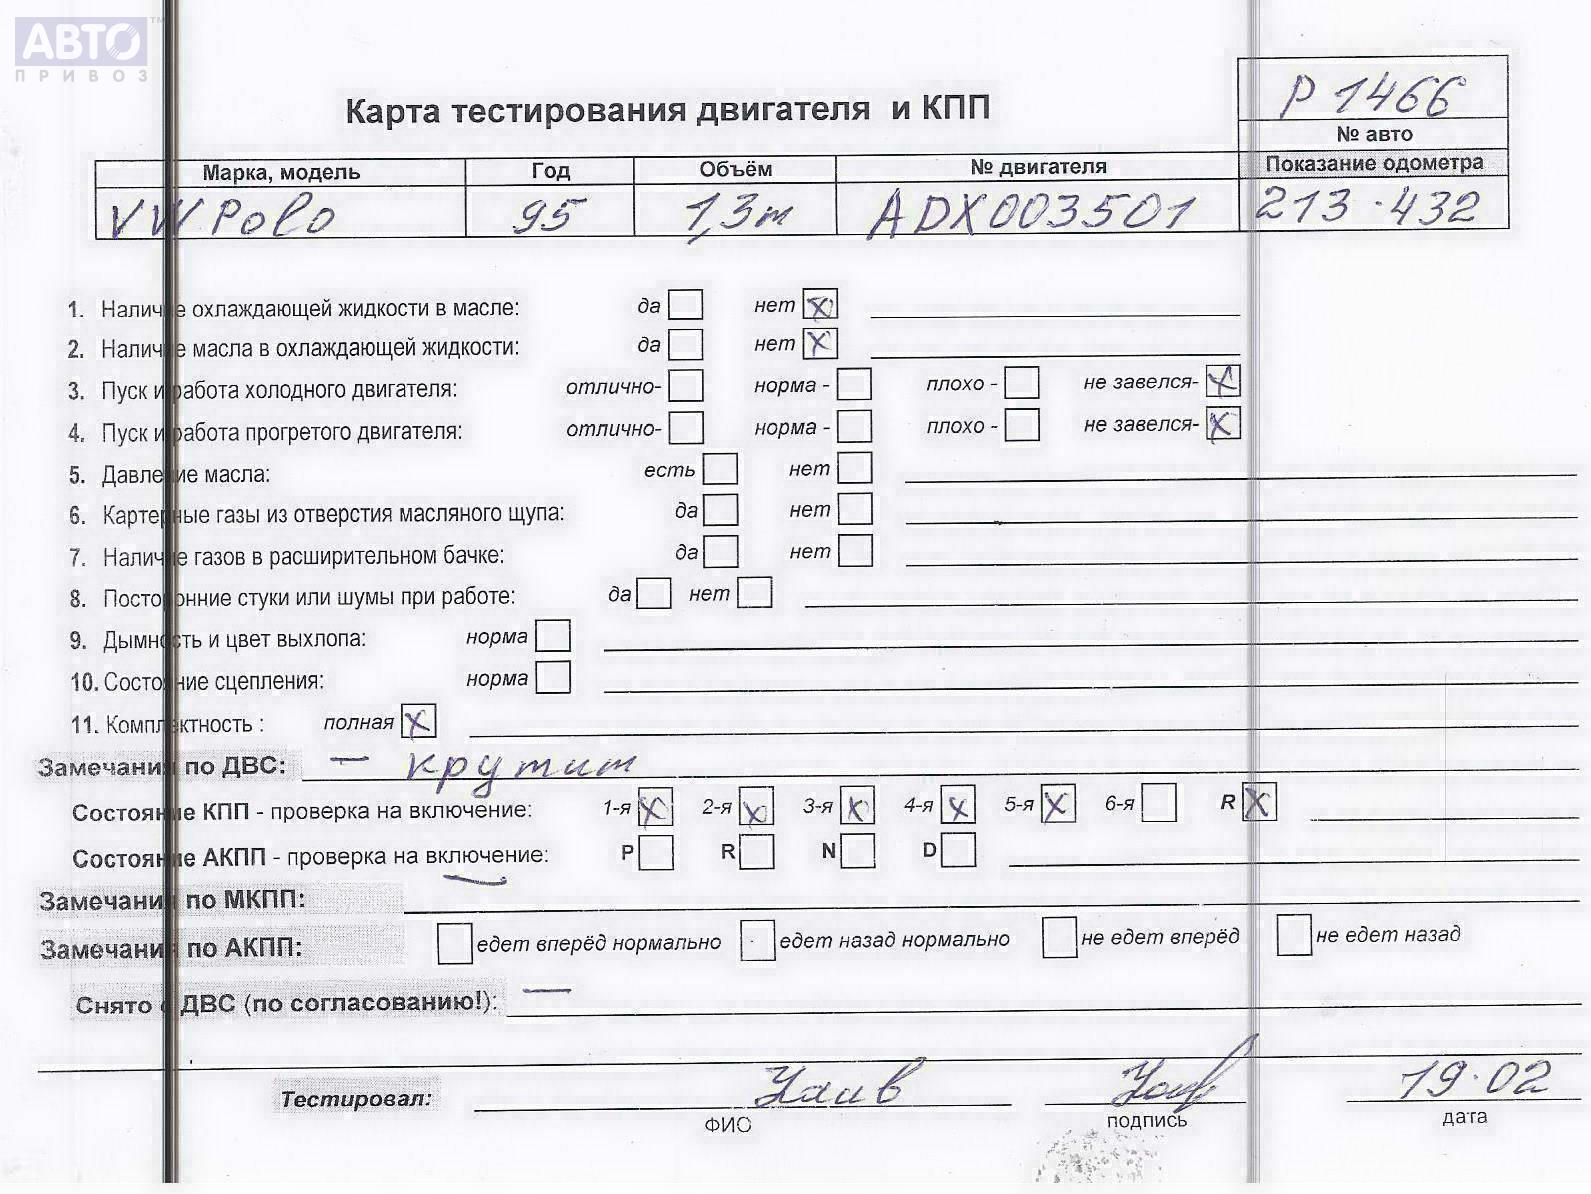 АВТО™
ПРИВОЗ
Р 1466
Карта тестирования двигателя и КПП
№ авто
Марка, модель Год Объём № двигателя Показание одометра
VW Polo 95 1,3т ADX003501 213.432
1. Наличие охлаждающей жидкости в масле: да нет x
2. Наличие масла в охлаждающей жидкости: да нет x
3. Пуск и работа холодного двигателя: отлично- норма - плохо - не завелся- x
4. Пуск и работа прогретого двигателя: отлично- норма - плохо - не завелся- x
5. Давление масла: есть нет
6. Картерные газы из отверстия масляного щупа: да нет
7. Наличие газов в расширительном бачке: да нет
8. Посторонние стуки или шумы при работе: да нет
9. Дымность и цвет выхлопа: норма
10. Состояние сцепления: норма
11. Комплектность : полная x
Замечания по ДВС: — крутит
Состояние КПП - проверка на включение: 1-я x 2-я x 3-я x 4-я x 5-я x 6-я R x
Состояние АКПП - проверка на включение: P R N D
Замечания по МКПП: —
Замечания по АКПП: едет вперёд нормально едет назад нормально не едет вперёд не едет назад
Снято с ДВС (по согласованию!): —
Тестировал: 19.02
ФИО подпись дата